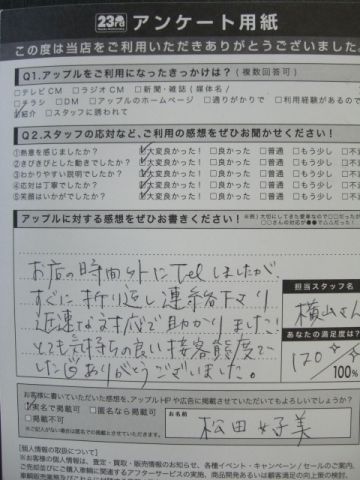 アンケート用紙
この度は当店をご利用いただきありがとうございました
Q1.アップルをご利用になったきっかけは？(複数回答可)
□テレビCM □ラジオCM □新聞・雑誌(媒体名/
□チラシ □DM □アップルのホームページ □通りがかりで □利用経験があるので
☑紹介 □スタッフに誘われて
Q2.スタッフの応対など、ご利用の感想をぜひお聞かせください！
①熱意を感じましたか？ ☑大変良かった！ □良かった □普通 □もう少し □不
②きびきびとした動きでしたか？ ☑大変良かった！ □良かった □普通 □もう少し □不
③わかりやすい説明でしたか？ ☑大変良かった！ □良かった □普通 □もう少し □不
④応対は丁寧でしたか？ ☑大変良かった！ □良かった □普通 □もう少し □不
⑤笑顔はいかがでしたか？ ☑大変良かった！ □良かった □普通 □もう少し □不
アップルに対する感想をぜひお書きください！
お店の時間外にTelしましたが、
すぐに折り返し連絡下さり
迅速な対応で助かりました!
とても気持ちの良い接客態度で
した ありがとうございました。
担当スタッフ
横山さん
あなたの満足度は？
120
100%
お客様に書いていただいた感想を、アップルHPや広告に掲載させていただいてもよろしいでしょうか？
☑実名で掲載可 □匿名なら掲載可
□掲載不可
※ご記入がない場合は匿名での掲載とさせていただきます。
お名前
松田好美
[個人情報の取扱について]
※お客様の個人情報は、査定・買取・販売情報のお知らせ、各種イベント・キャンペーン/セールのご案内、